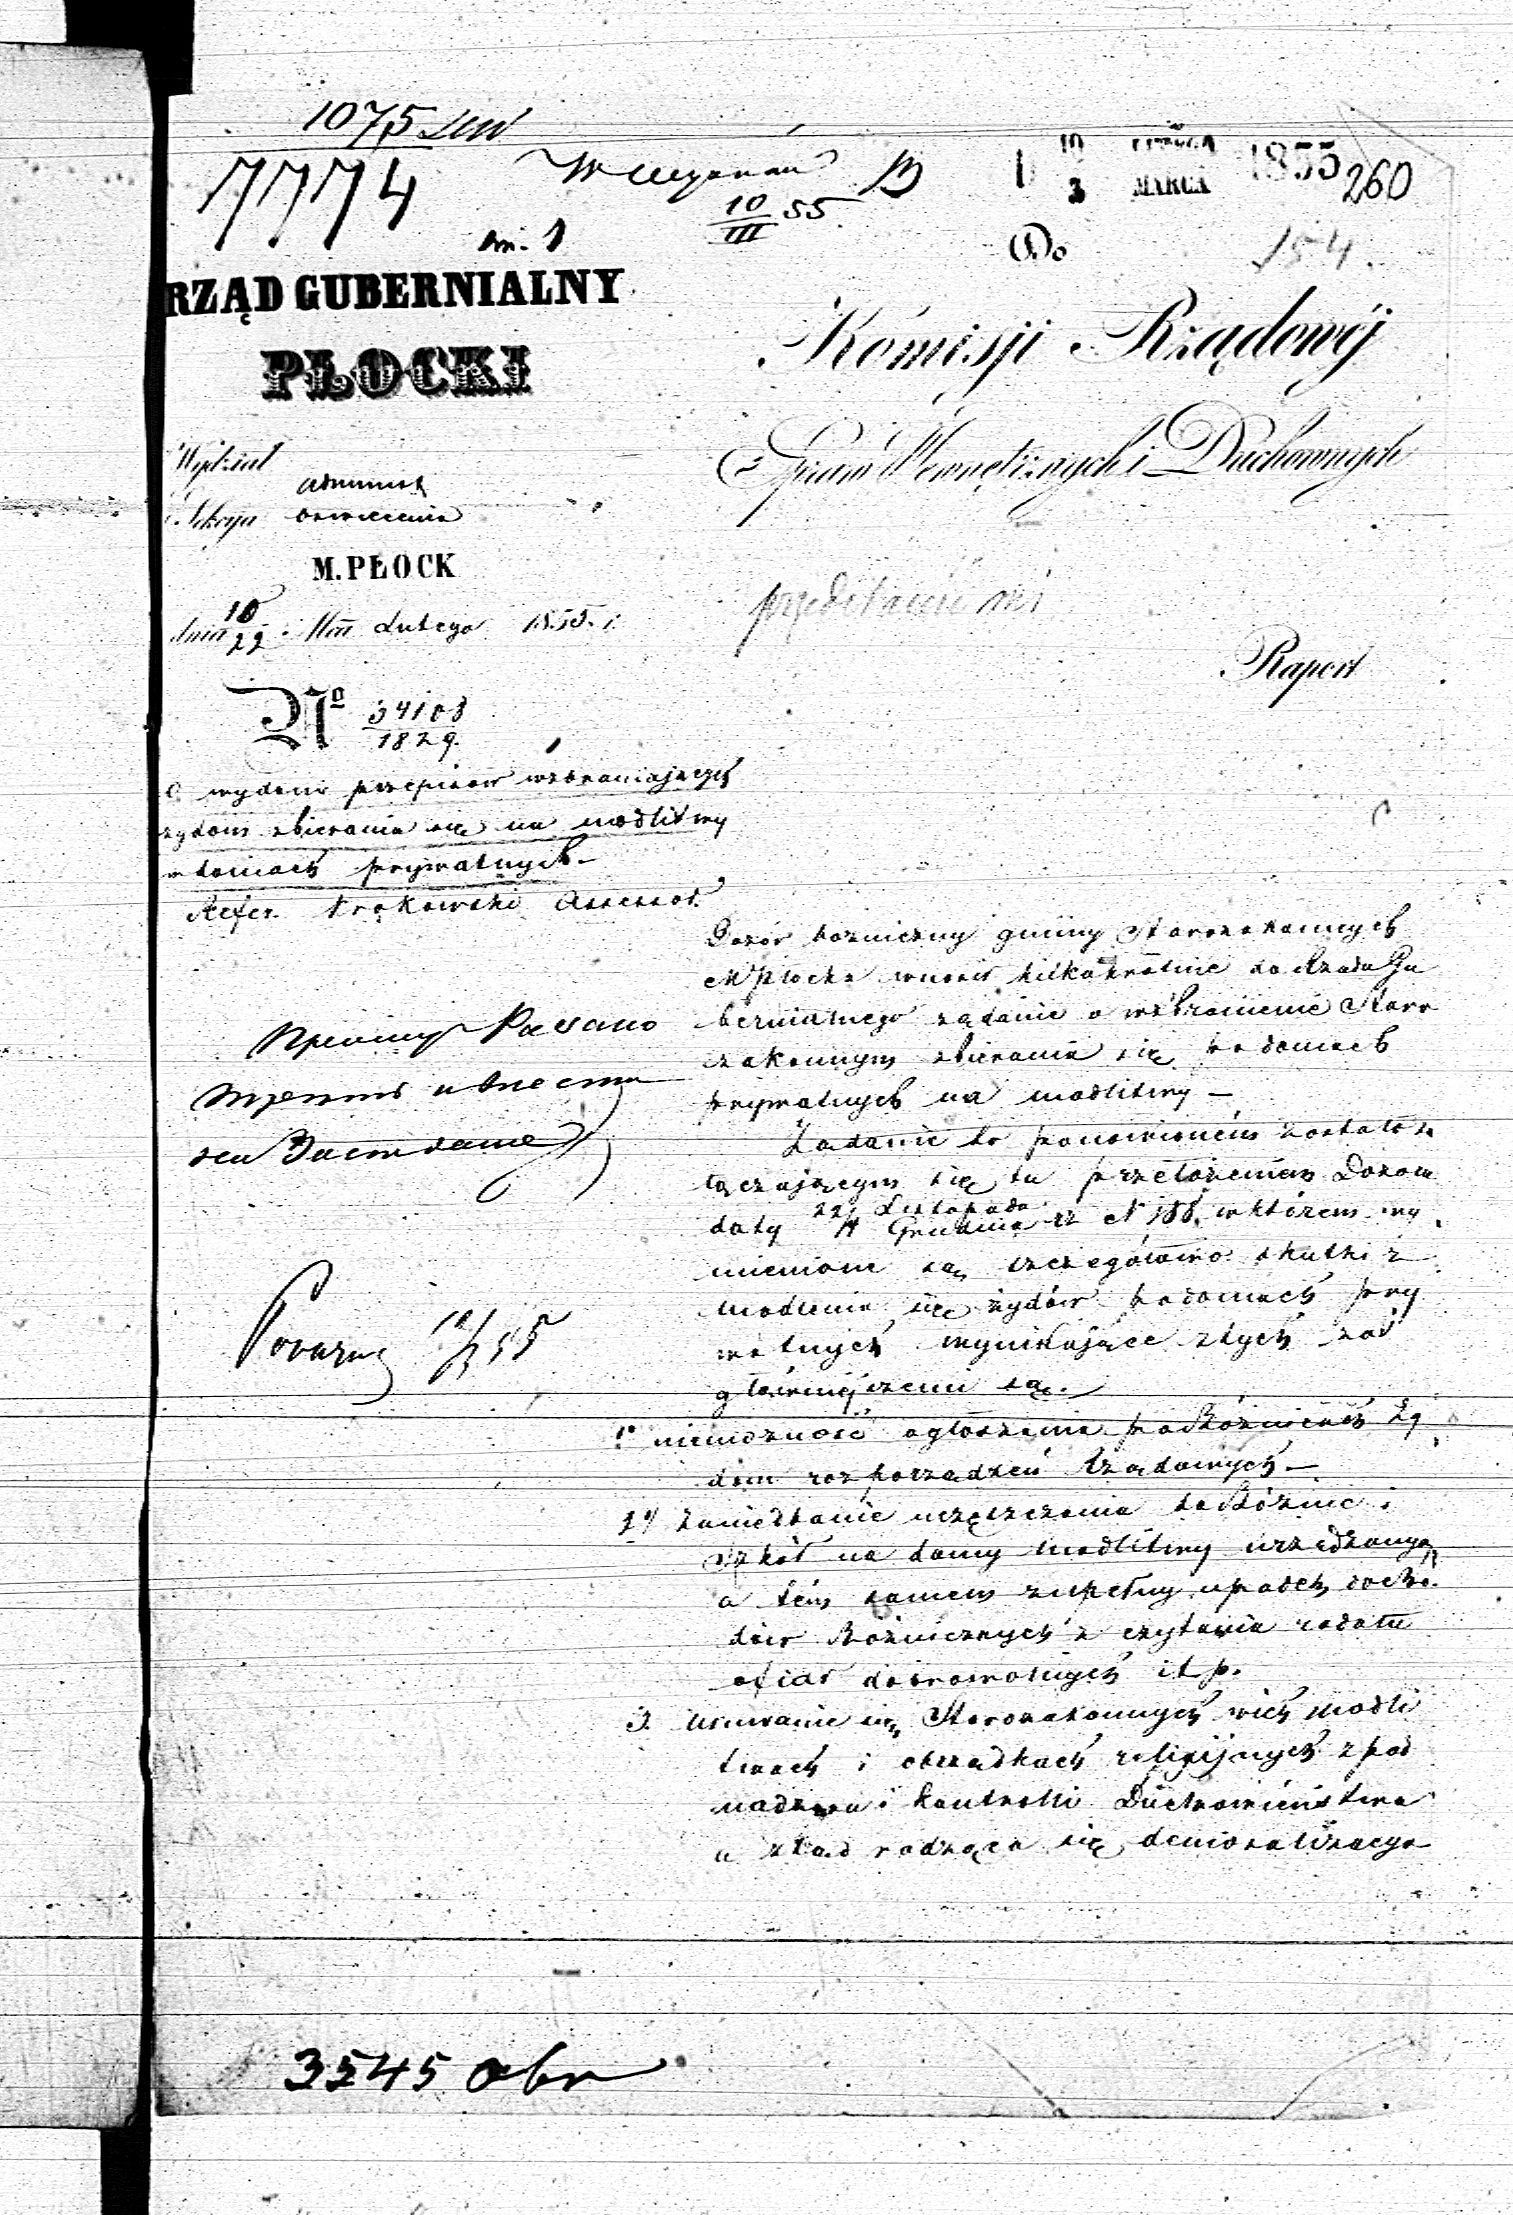 1075
7774
10/III 55
B
10 LUTEGO 1855
3 MARCA
260
154.
Do
RZĄD GUBERNIALNY
PŁOCKI
Komisji Rządowéj
Spraw Wewnętrznych i Duchownych
Wydział Administ
Sekcya Oswiecenia
M. PŁOCK
dnia 10/22 Lutego 1855. r.
Raport
No 34108/1829.
O wydanie przepisów wzbraniających
żydom zbierania się na modlitwy
w domach prywatnych
Refer. Assessor
Dozór bożniczny gminy Starozakonnych
M Płocka wnosił kilkakrotnie do Rządu Gu
bernialnego żądanie o wzbronienie Staro
zakonnym zbierania się po domach
prywatnych na modlitwy –
Żądanie to ponowioném zostało w
łączającym się tu przełożeniu Dozoru
daty 22 Listopada / 4 Grudnia N 188. w którém wy
mienione są szczegółowo skutki z
modlenia się żydów po domach pry
watnych wynikające z tych zaś
główniejszemi są.
1o niemożność ogłoszenia po Bóżnicach Ży
dom rozporządzeń Rządowych –
2o Zaniedbanie uczęszczania do Bóżnic i
Szkół na domy modlitwy urządzonych
a tém samem zupełny upadek docho
dów Bóżnicznych z czytania rodału
ofiar dobrowolnych itp.
3. Usuwanie się Starozakonnych w ich modli
twach i obrządkach religijnych z pod
nadzoru i kontrolli Duchowieństwa
a ztąd rodząca się demoralizacya
3545 obr